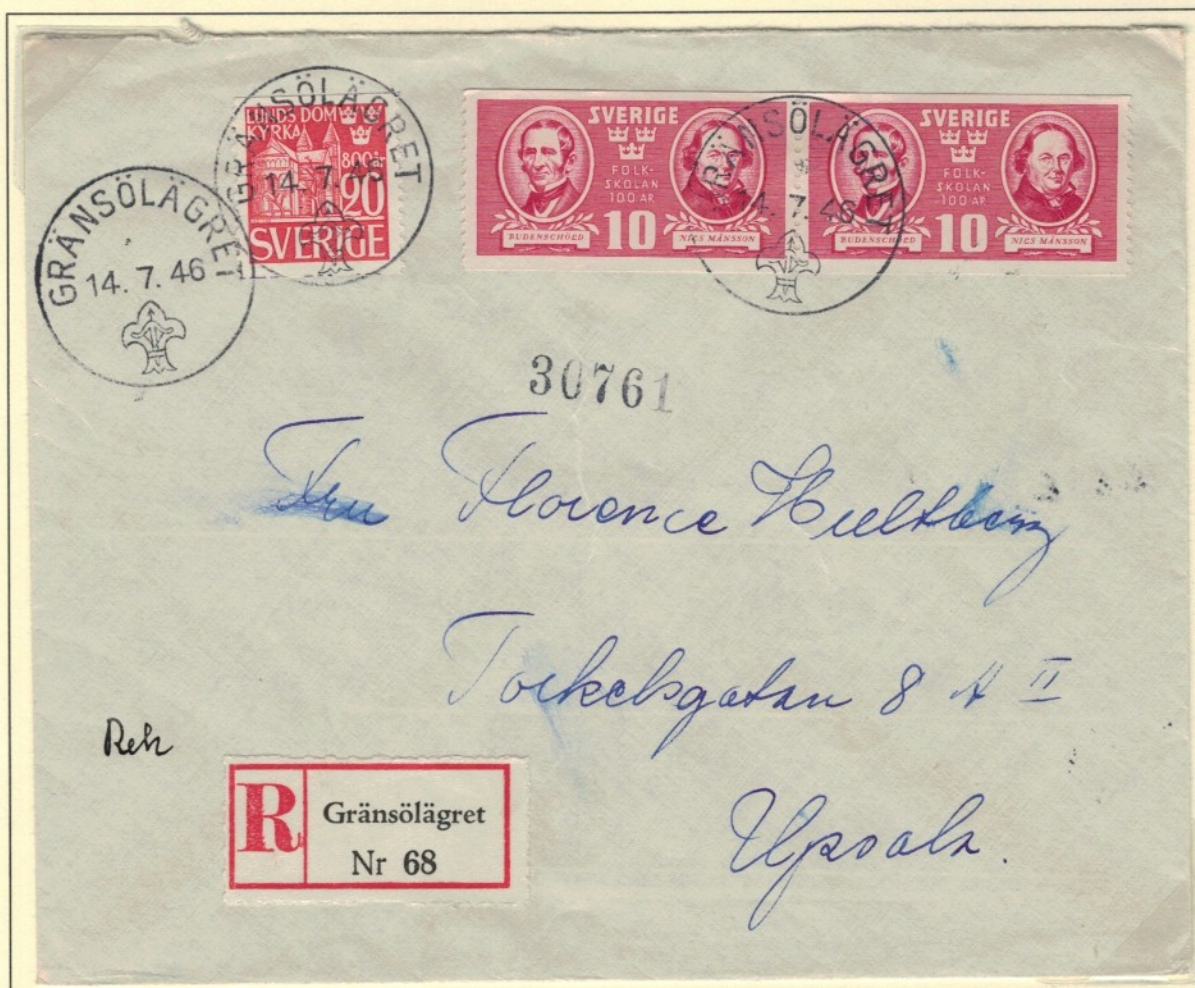 GRÄNSÖLÄGRET
14. 7. 46
GRÄNSÖLÄGRET
14. 7. 46
LUNDS DOM
KYRKA
800 ÅR
20
SVERIGE
GRÄNSÖLÄGRET
14. 7. 46
SVERIGE
FOLK-
SKOLAN
100 ÅR
10
RUDENSCHÖLD
NILS MÅNSSON
SVERIGE
FOLK-
SKOLAN
100 ÅR
10
RUDENSCHÖLD
NILS MÅNSSON
30761
Fru Florence Hultberg
Torkelsgatan 8 A II
Upsala.
Rek
R
Gränsölägret
Nr 68